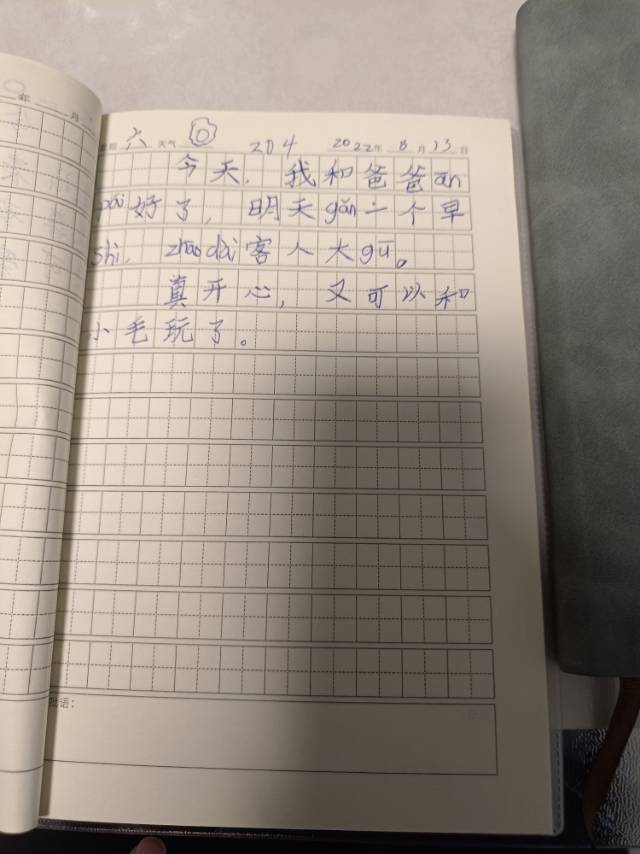 年 月
星期 六 天气 204 2022年 8月13日
今天,我和爸爸ān
pái好了,明天gǎn一个早
shì,zhāo dài客人大gū。
真开心,又可以和
小毛玩了。
批语: